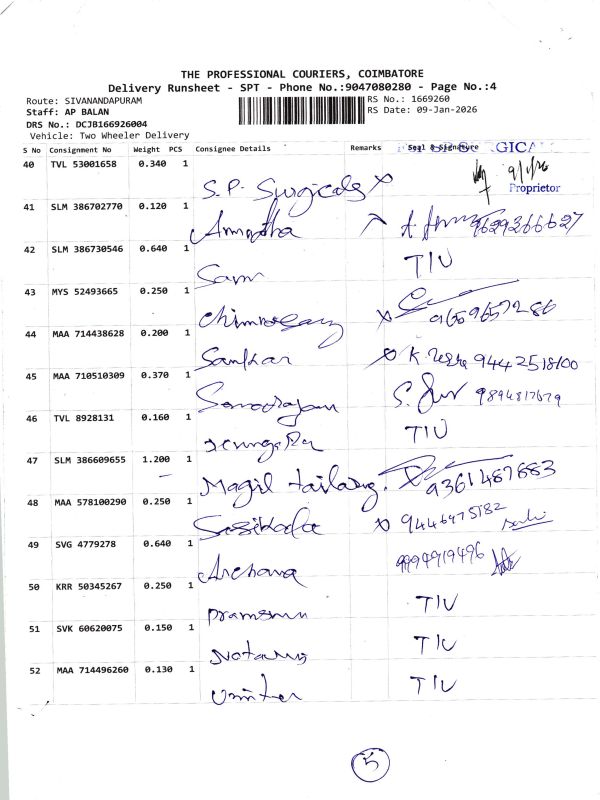 THE PROFESSIONAL COURIERS, COIMBATORE
Delivery Runsheet - SPT - Phone No.:9047080280 - Page No.:4
Route: SIVANANDAPURAM RS No.: 1669260
Staff: AP BALAN RS Date: 09-Jan-2026
DRS No.: DCJB166926004
Vehicle: Two Wheeler Delivery
S No Consignment No Weight PCS Consignee Details Remarks Seal & Signature
40 TVL 53001658 0.340 1
S.P. Surgicals 9/1/26
Proprietor
41 SLM 386702770 0.120 1
9629266627
42 SLM 386730546 0.640 1
Sam TIU
43 MYS 52493665 0.250 1
44 MAA 714438628 0.200 1
Sankar K.
45 MAA 710510309 0.370 1
S. 9894817679
46 TVL 8928131 0.160 1
TIU
47 SLM 386609655 1.200 1
Magil 9361487883
48 MAA 578100290 0.250 1
Sasikala 9446975182
49 SVG 4779278 0.640 1
Archana 9994919496
50 KRR 50345267 0.250 1
TIU
51 SVK 60620075 0.150 1
TIU
52 MAA 714496260 0.130 1
TIU
5